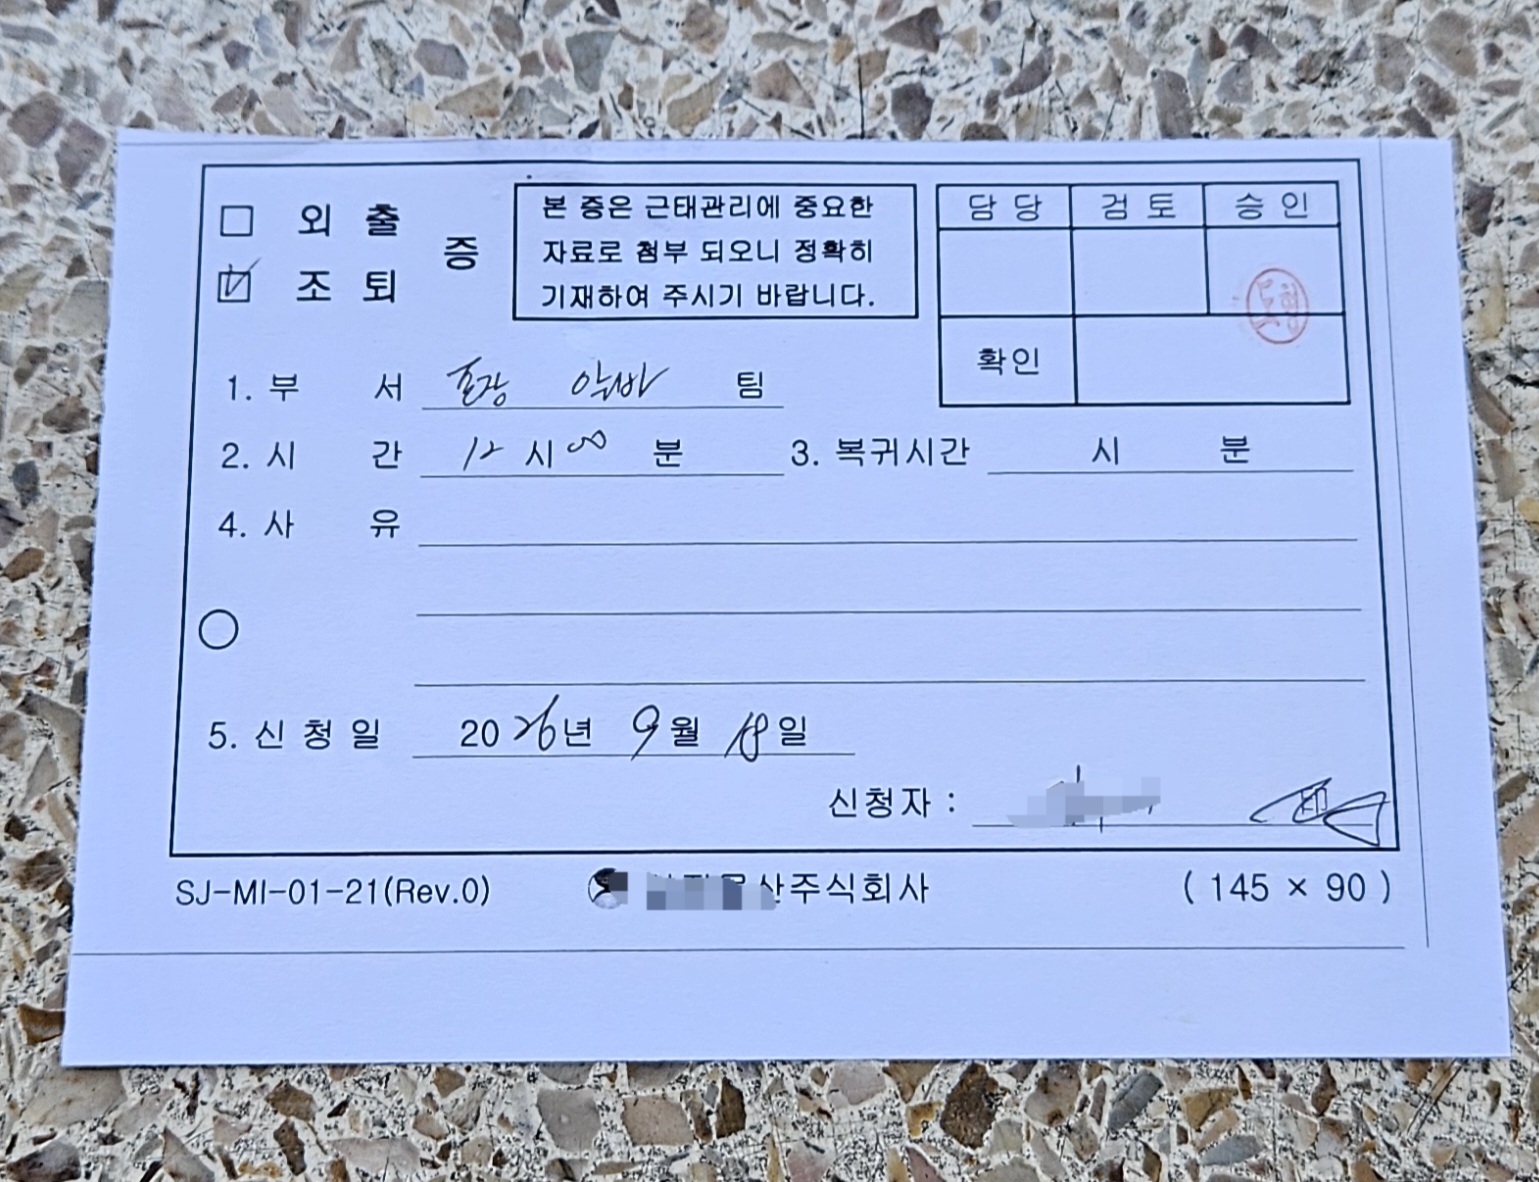 외 출
조 퇴
증
본 증은 근태관리에 중요한
자료로 첨부 되오니 정확히
기재하여 주시기 바랍니다.
담 당 검 토 승 인
도형
확인
1. 부 서 포장 알바 팀
2. 시 간 12 시 00 분 3. 복귀시간 시 분
4. 사 유
5. 신 청 일 2026년 9월 18일
신청자 : 印
SJ-MI-01-21(Rev.0) 주식회사 ( 145 × 90 )